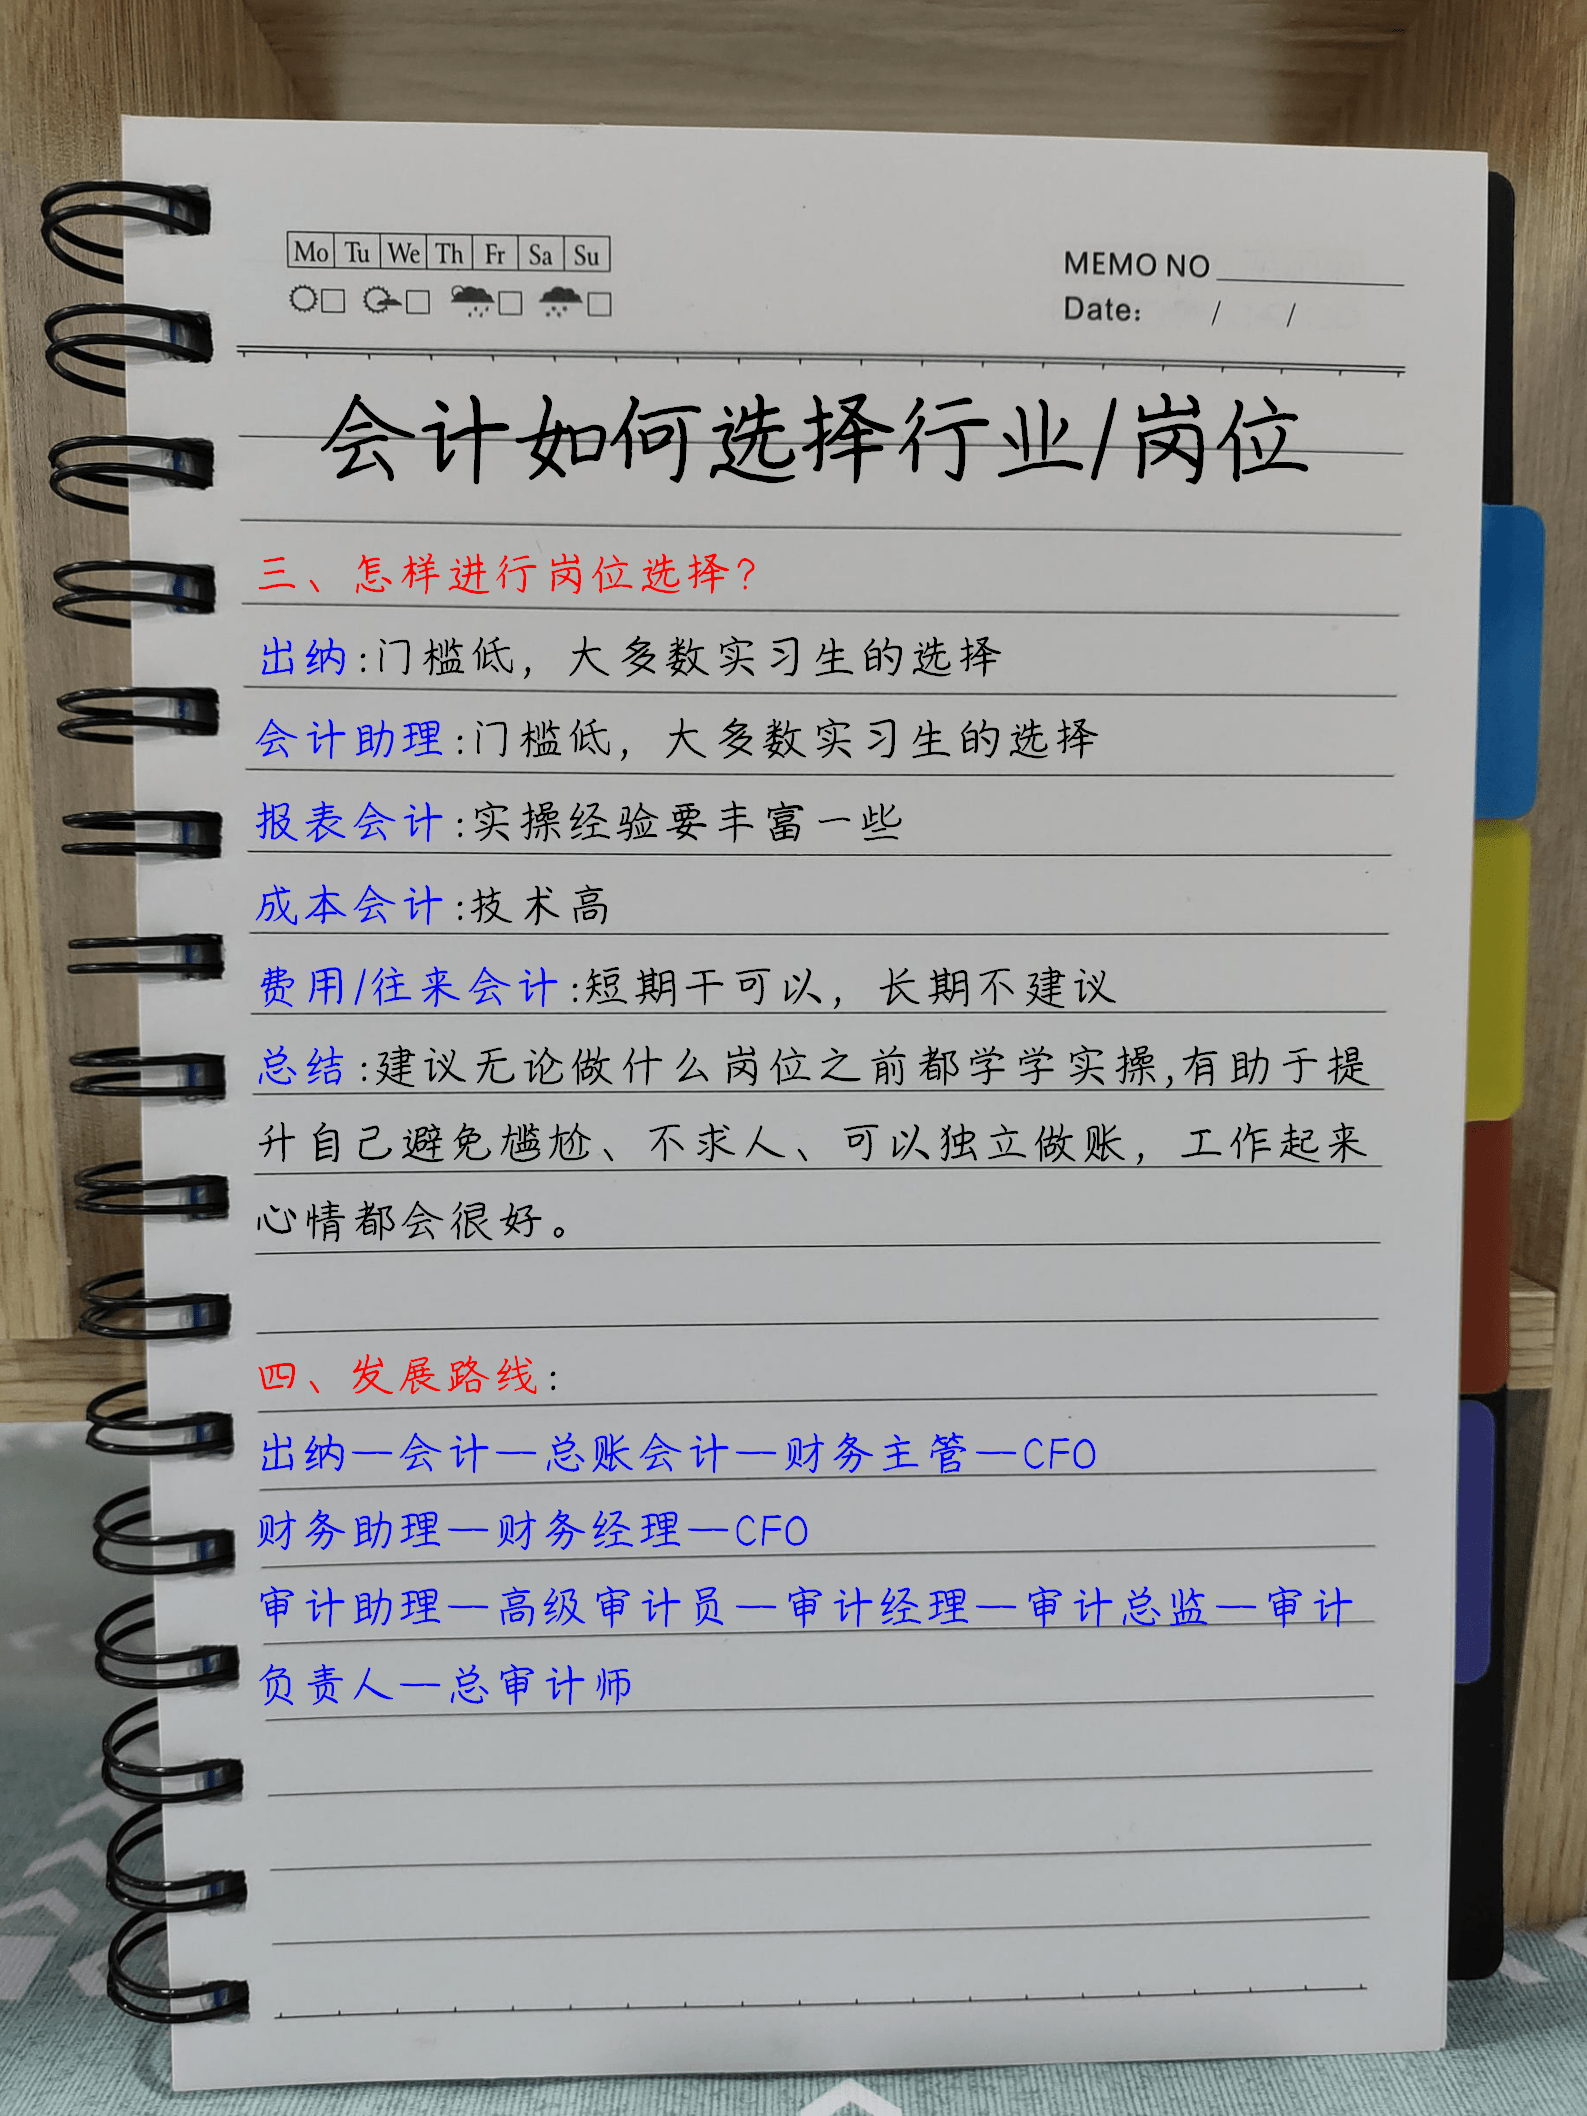 Mo Tu We Th Fr Sa Su
MEMO NO
Date: / /
会计如何选择行业/岗位
三、怎样进行岗位选择?
出纳:门槛低，大多数实习生的选择
会计助理:门槛低，大多数实习生的选择
报表会计:实操经验要丰富一些
成本会计:技术高
费用/往来会计:短期干可以，长期不建议
总结:建议无论做什么岗位之前都学学实操,有助于提
升自己避免尴尬、不求人、可以独立做账，工作起来
心情都会很好。
四、发展路线:
出纳—会计—总账会计—财务主管—CFO
财务助理—财务经理—CFO
审计助理—高级审计员—审计经理—审计总监—审计
负责人—总审计师